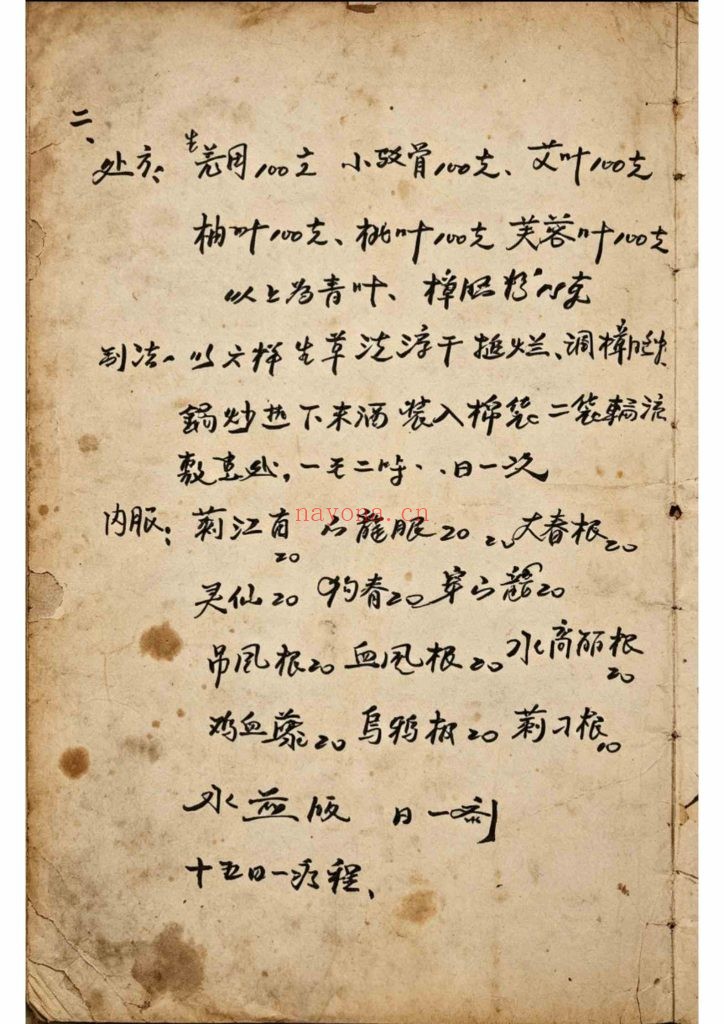 二、
处方：生羌用100克 小驳骨100克、艾叶100克
柚叶100克、桃叶100克 芙蓉叶100克
以上为青叶、樟脑粉15克
制法：以六样生草洗淳干捶烂、调樟脑
鍋炒热下来洒装入棉袋二袋輪流
敷患处，一天二时、日一次
内服：20 石龍眼20 大春根20
灵仙20 狗脊20 穿山龍20
吊风根20 血风根20 水高丽根20
鸡血藤20 烏鸦根20 刺刁根10
水煎服 日一剂
十五日一疗程、
nayona.cn